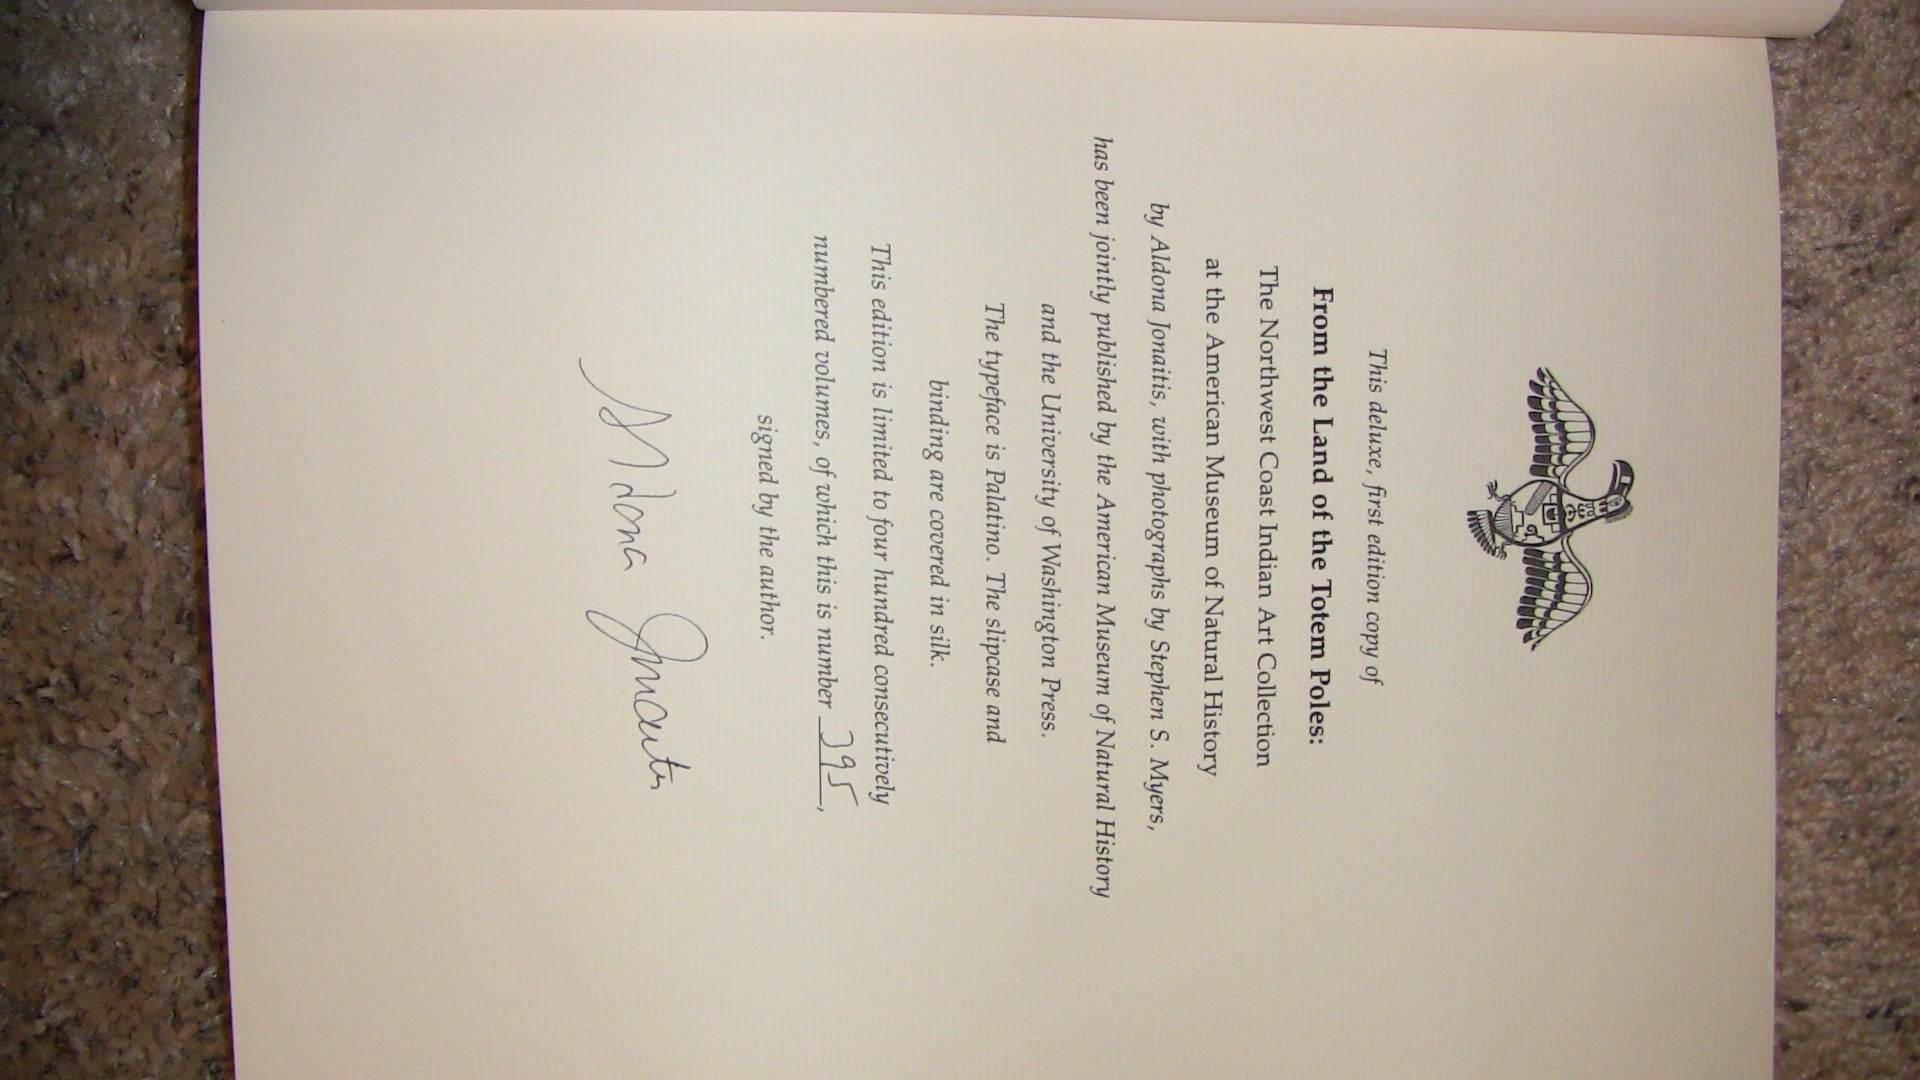 This deluxe, first edition copy of
From the Land of the Totem Poles:
The Northwest Coast Indian Art Collection
at the American Museum of Natural History
by Aldona Jonaitis, with photographs by Stephen S. Myers,
has been jointly published by the American Museum of Natural History
and the University of Washington Press.
The typeface is Palatino. The slipcase and
binding are covered in silk.
This edition is limited to four hundred consecutively
numbered volumes, of which this is number 395,
signed by the author.
Aldona Jonaitis